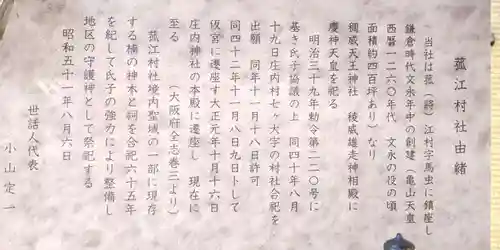 菰江村社由緒
当社は菰(蒋)江村字馬虫に鎮座し
鎌倉時代文永年中の創建(亀山天皇
西暦一二六〇年代 文永の役の頃
面積約四百坪あり)なり
稠威天王神社 稜威雄走神相殿に
慶神天皇を祀る
明治三十九年勅令第二二〇号に
基き氏子協議の上 同四十年八月
十九日庄内村七ヶ大字の村社合祀を
出願 同年十一月十八日許可
同四十二年十一月八日九日トして
仮宮に遷座す大正元年十月十六日
庄内神社の本殿に遷座し 現在に
至る (大阪府全志巻三より)
菰江村社境内聖域の一部に現存
する楠の神木と祠を合祀六十五年
を紀して氏子の強力により整備し
地区の守護神として祭祀する
昭和五十一年八月六日
世話人代表
小山定一